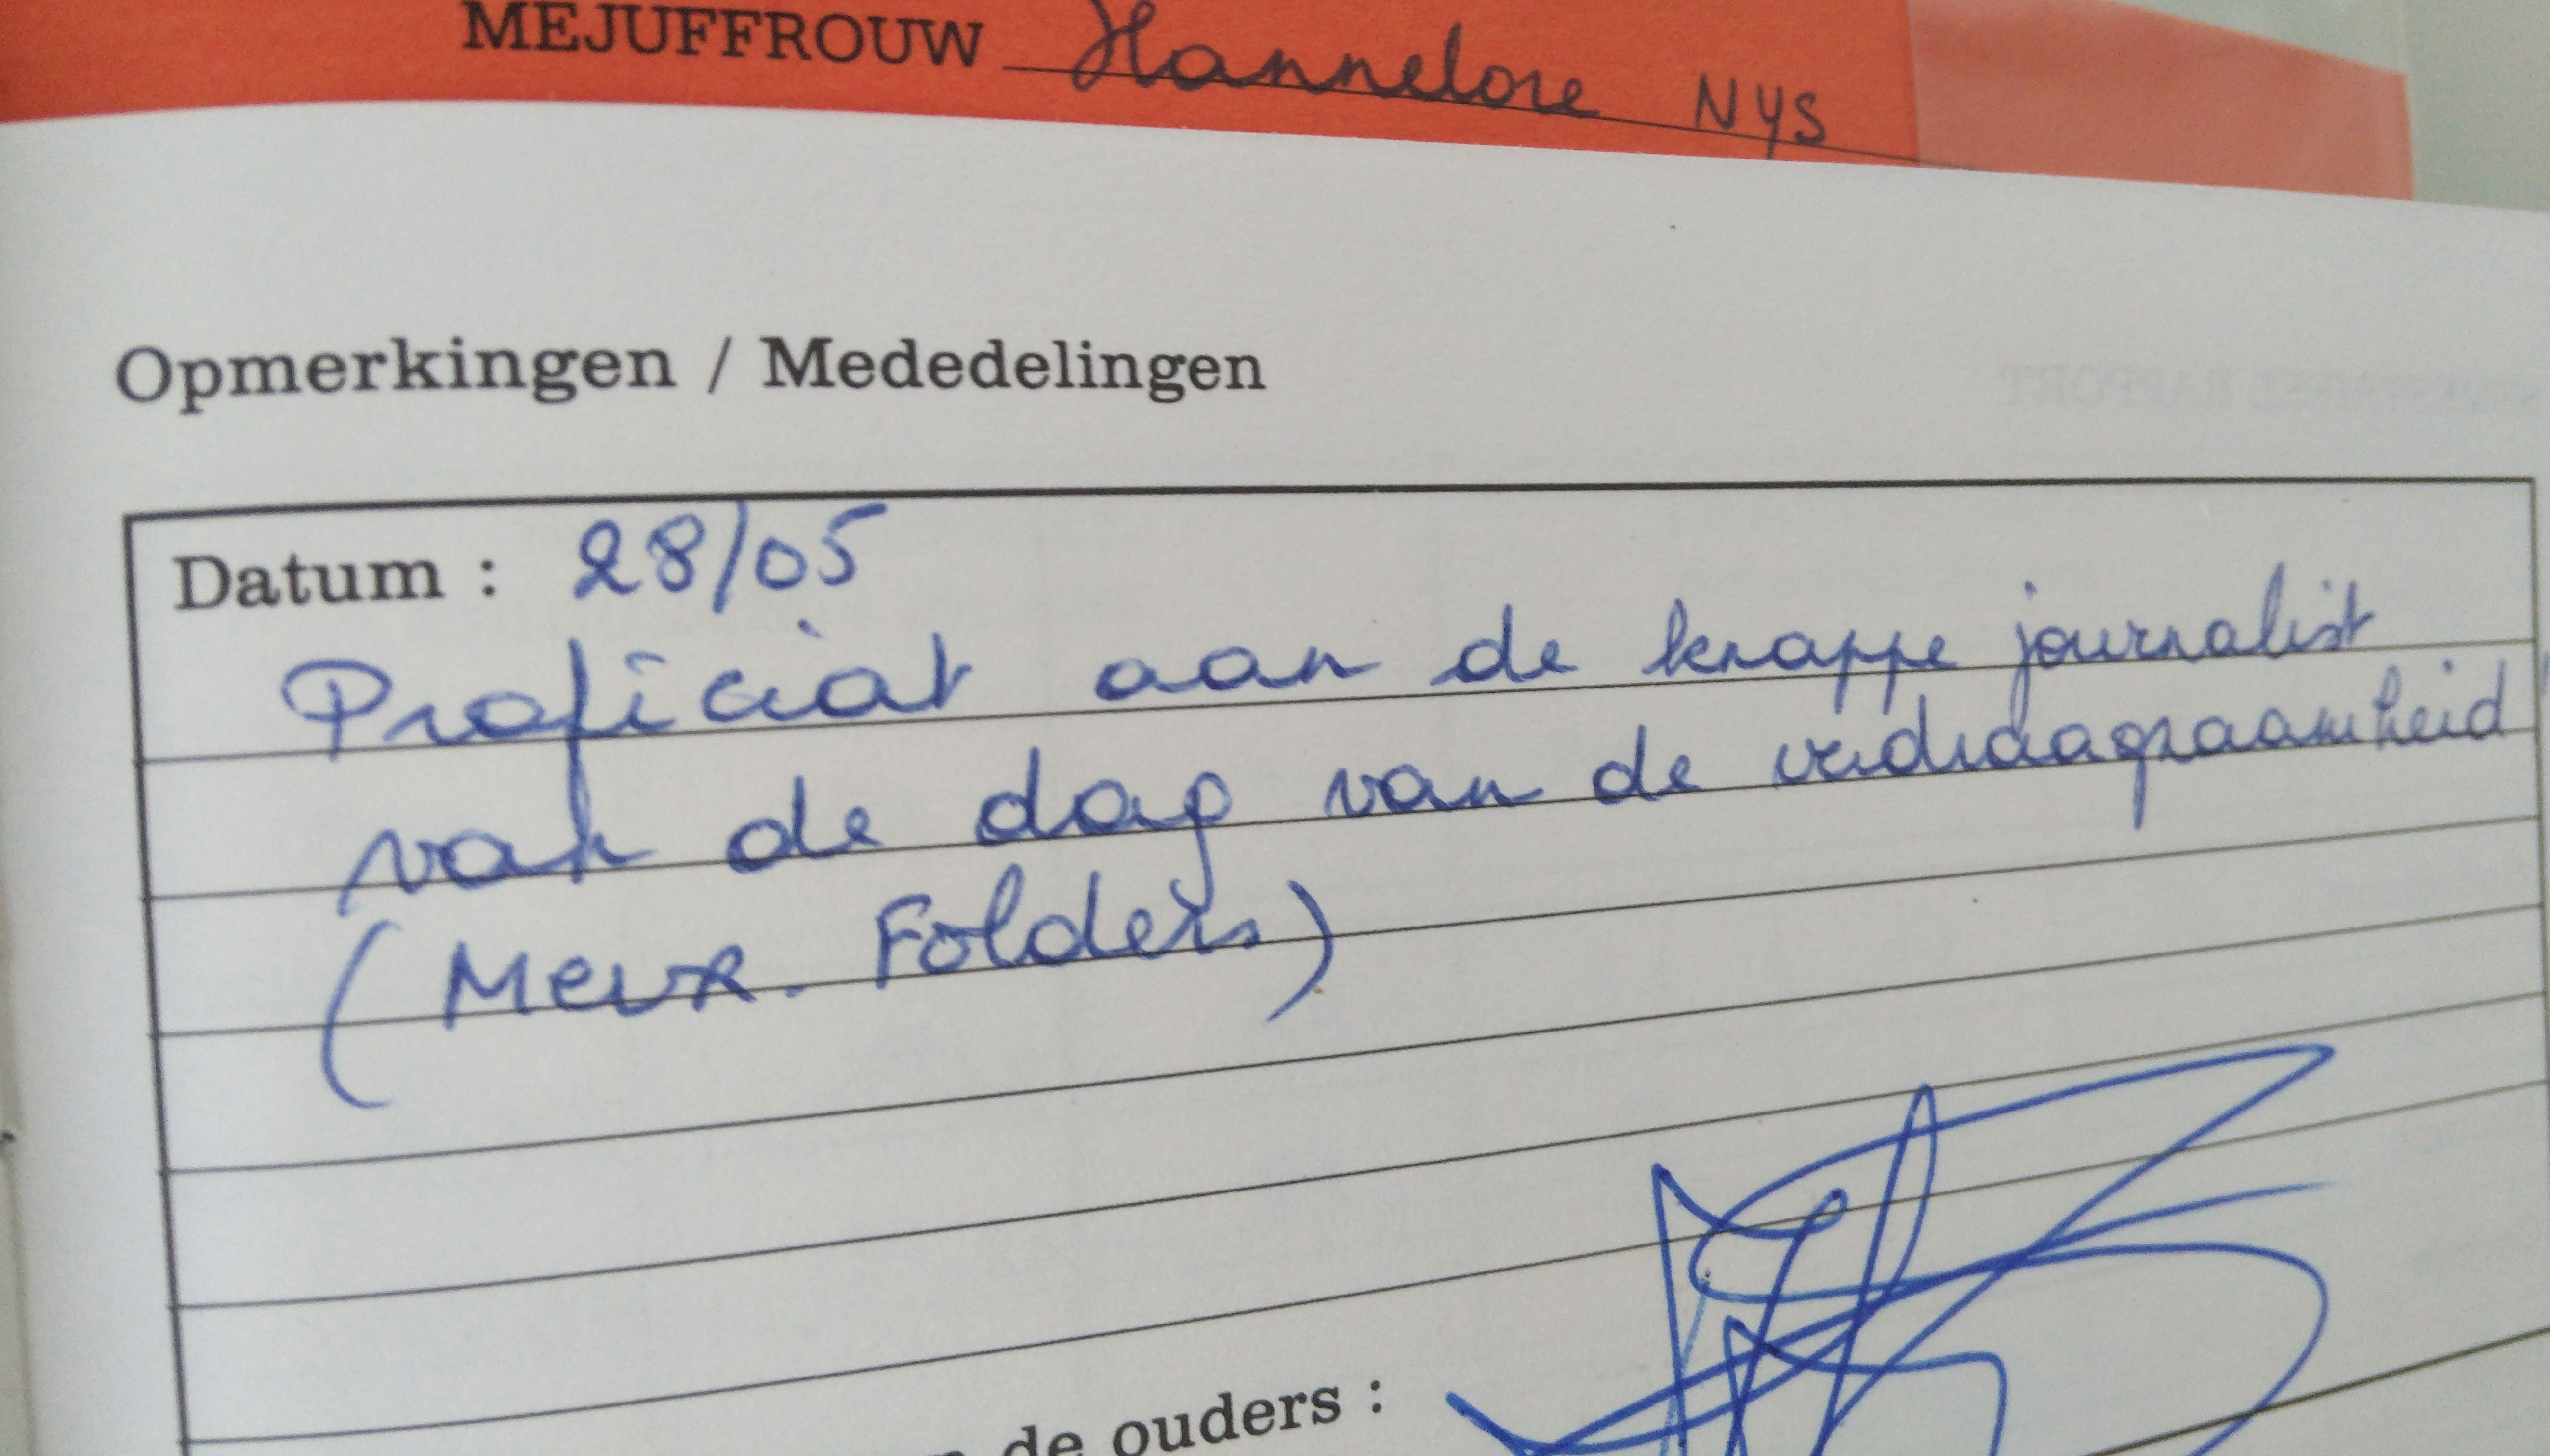 MEJUFFROUW Hannelore NYS
Opmerkingen / Mededelingen
Datum : 28/05
Proficiat aan de knappe journalist
van de dag van de verdraagzaamheid!
(Mevr. Folders)
de ouders :